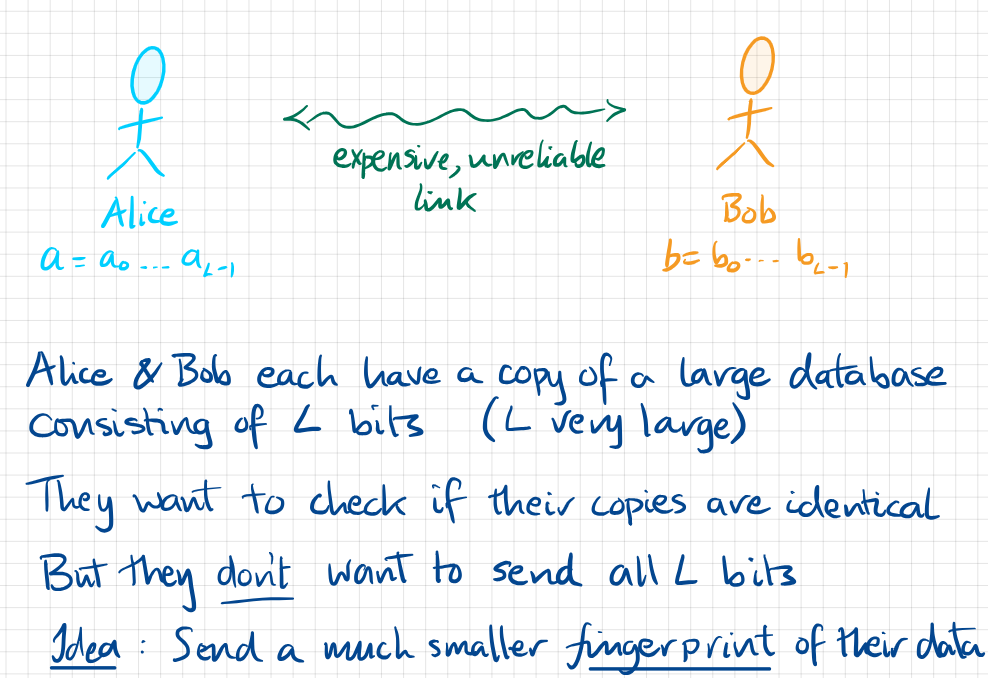 expensive, unreliable
link
Alice
Bob
a = a₀ ... a_{L-1}
b = b₀ ... b_{L-1}
Alice & Bob each have a copy of a large database
consisting of L bits (L very large)
They want to check if their copies are identical
But they don't want to send all L bits
Idea : Send a much smaller fingerprint of their data